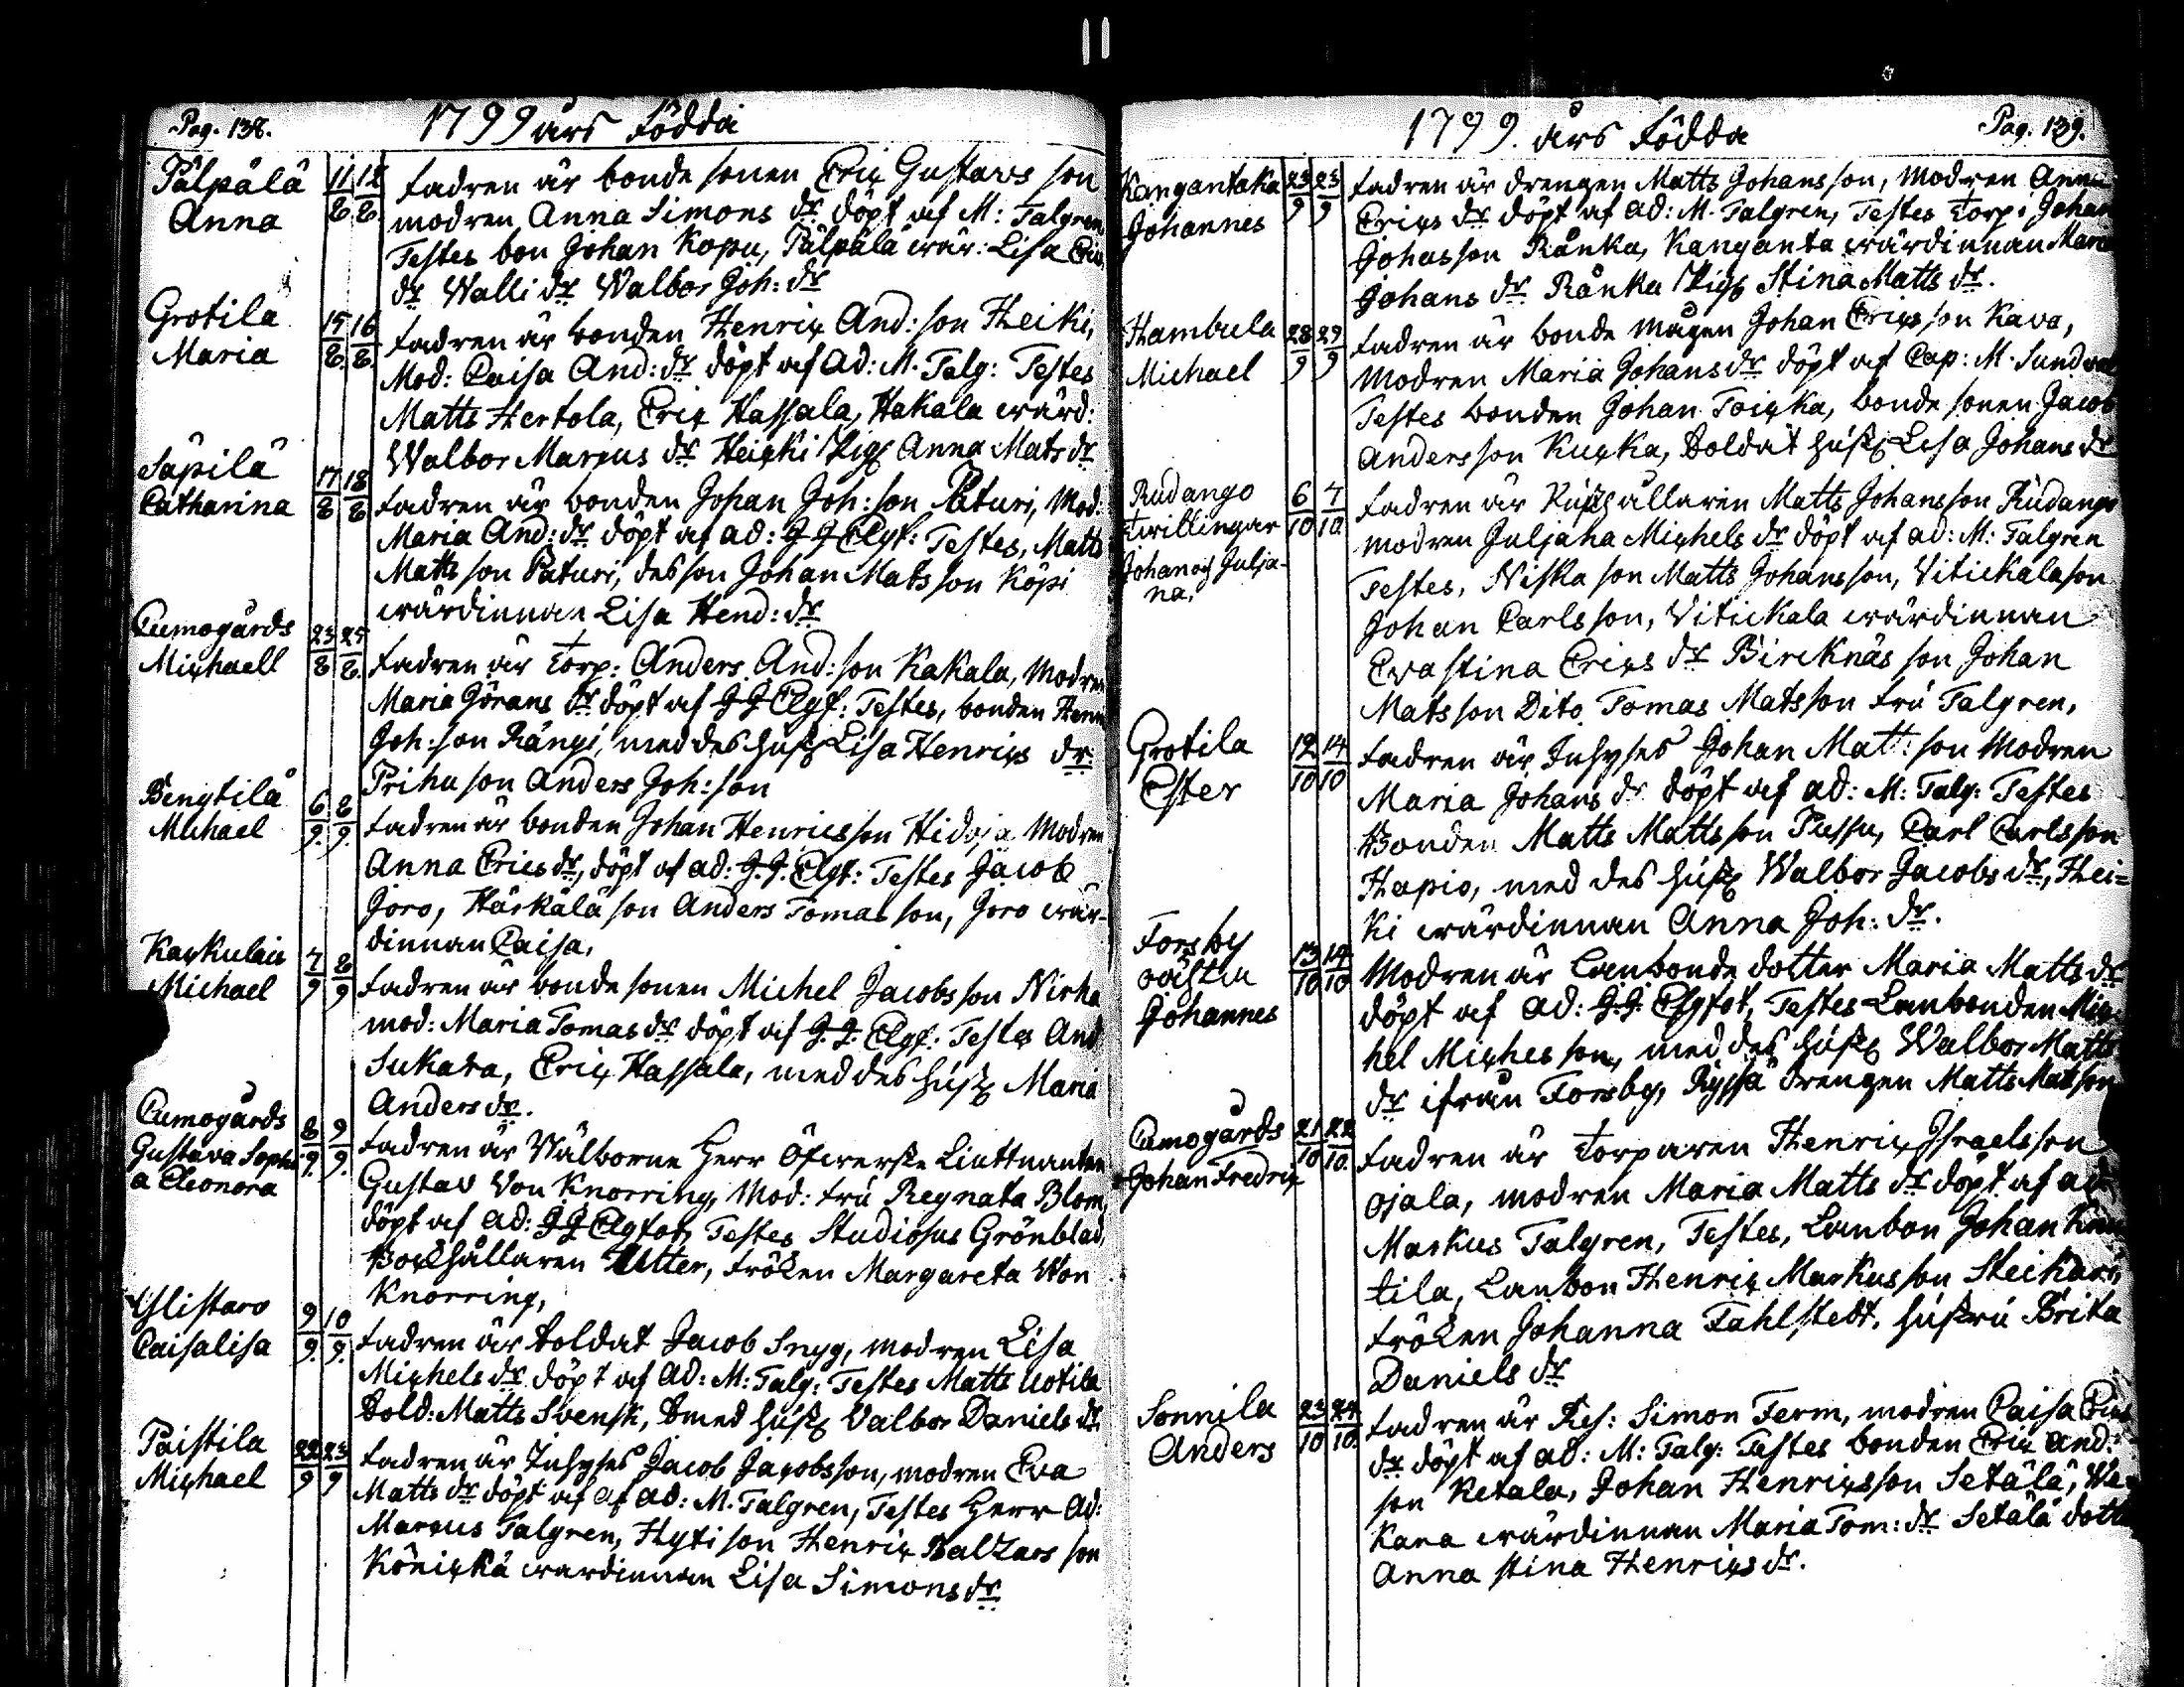 Pag. 138. 1799 års Födda
Pälpälä Anna 11/8. 12/8. Fadren är bonde sonen Eric Gustavs son
modren Anna Simons dr döpt af M: Talgren
Testes bon Johan Kopu, Pälpälä wär: Lisa Eric
dr Walli dr Walbor Joh: dr
Grotila Maria 15/8. 16/8. Fadren är bonden Henrix And: son Heiki,
Mod: Caisa And: dr döpt af Ad: M. Talg: Testes
Matts Hertola, Erix Hassala, Hakala wärd:
Walbor Marxus dr Heixki Pig Anna Mats dr
Säpilä Catharina 17/8 18/8 Fadren är bonden Johan Joh: son Paturi, Mod:
Maria And: dr döpt af ad: J J Elgf: Testes, Matts
Matts son Paturi, des son Johan Mats son Köpi
wärdinnan Lisa Hend: dr
Cumogårds Mixhaell 23/8 25/8. Fadren är Torp: Anders And: son Kakala, Modren
Maria Görans dr döpt af J J Elgf: Testes, bonden Henr
Joh: son Rängi, med des hust Lisa Henrixs dr
Prihu son Anders Joh: son
Bengtilä Michael 6/9. 8/9. Fadren är bonden Johan Henricsson Hidoja Modren
Anna Erics dr, döpt af ad: J. J. Elgf: Testes Jacob
Joro, Härkälä son Anders Tomas son, Joro wär-
dinnan Caisa,
Kaxkulais Michael 7/9 8/9 Fadren är bonde sonen Michel Jacobs son Nirha
mod: Maria Tomas dr döpt af J. J. Elgf: Testes And
Sukava, Erix Hassala, med des hust Maria
Anders dr.
Cumogårds Gustava Sophi a Eleonora 8/9. 9/9. Fadren är Wälborne Herr Öfwerste Liuttnanten
Gustav Von Knorring, Mod: Fru Regnata Blom,
döpt af ad: J J Elgfot, Testes Studiosus Grönblad,
Bokhållaren Utter, Fröken Margareta Von
Knorring,
Ylistaro Caisalisa 9/9. 10/9. Fadren är Soldat Jacob Snyg, modren Lisa
Mixhels dr döpt af Ad: M: Talg: Testes Matts Uotila
Sold: Matts Svensk, med hust Valbor Daniels dr
Paistila Mixhael 22/9 23/9 Fadren är Inhyses Jacob Jaxobsson, modren Eva
Matts dr döpt af af ad: M. Talgren, Testes Herr Ad:
Marxus Talgren, Hyti son Henrix Balzars son
Könixkä wardinnan Lisa Simons dr
1799. års Födda Pag. 139.
Kangantaka Johannes 23/9 23/9 Fadren är drengen Matts Johansson, Modren Anna
Erixs dr döpt af ad: M. Talgren, Testes Torp: Johan
Johasson Ränka, Kanganta wärdinnan Maria
Johans dr Ränka Pig Stina Matts dr.
Hambula Michael 28/9 29/9 Fadren är bonde mågen Johan Erixsson Kava,
Modren Maria Johans dr döpt af Cap: M. Sundval
Testes bonden Johan Toixka, bonde sonen Jacob
Andersson Kuxka, Soldat hust Lisa Johans dr
Rudango twillingar Johan ox Julja- na. 6/10 7/10. Fadren är Kusthållaren Matts Johansson Rudango
modren Juljaha Mixhels dr döpt af ad: M: Talgren
Testes, Niska son Matts Johansson, Vitickala son
Johan Carlsson, Vitickala wärdinnan
Evastina Erixs dr Bircknäs son Johan
Mats son Dito Tomas Matsson Fru Talgren,
Grotila Ester 12/10 14/10 Fadren är Inhyses Johan Matt: son Modren
Maria Johans dr döpt af ad: M: Talg: Testes
Bonden Matts Mattsson Pussu, Carl Carlsson
Hapio, med des hust Walbor Jacobs dr, Hei=
ki wärdinnan Anna Joh: dr.
Forsby oäkta Johannes 13/10 14/10 Modren är Lanbonde dotter Maria Matts dr
döpt af ad: J. J. Elgfot, Testes Lanbonden Mix
hel Mixhes son, med des hust Walbor Matts
dr ifrån Forsby, Ryssä drengen Matts Matsson
Cumogårds Johan Fredrix 21/10 22/10. Fadren är Torparen Henrix Israelsson
ojala, modren Maria Matts dr döpt af ad:
Markus Talgren, Testes, Lanbon Johan
tila, Lanbon Henrix Markus son Steikari,
Fröken Johanna Fahlstedt, hustru Brita
Daniels dr
Sonnila Anders 23/10 24/10. Fadren är Res: Simon Ferm, modren Caisa Erics
dr döpt af ad: M: Talg: Testes bonden Erix And:
son Ketala, Johan Henrixsson Setälä,
Kara wärdinnan Maria Tom: dr Setälä dotter
Anna stina Henrixs dr.